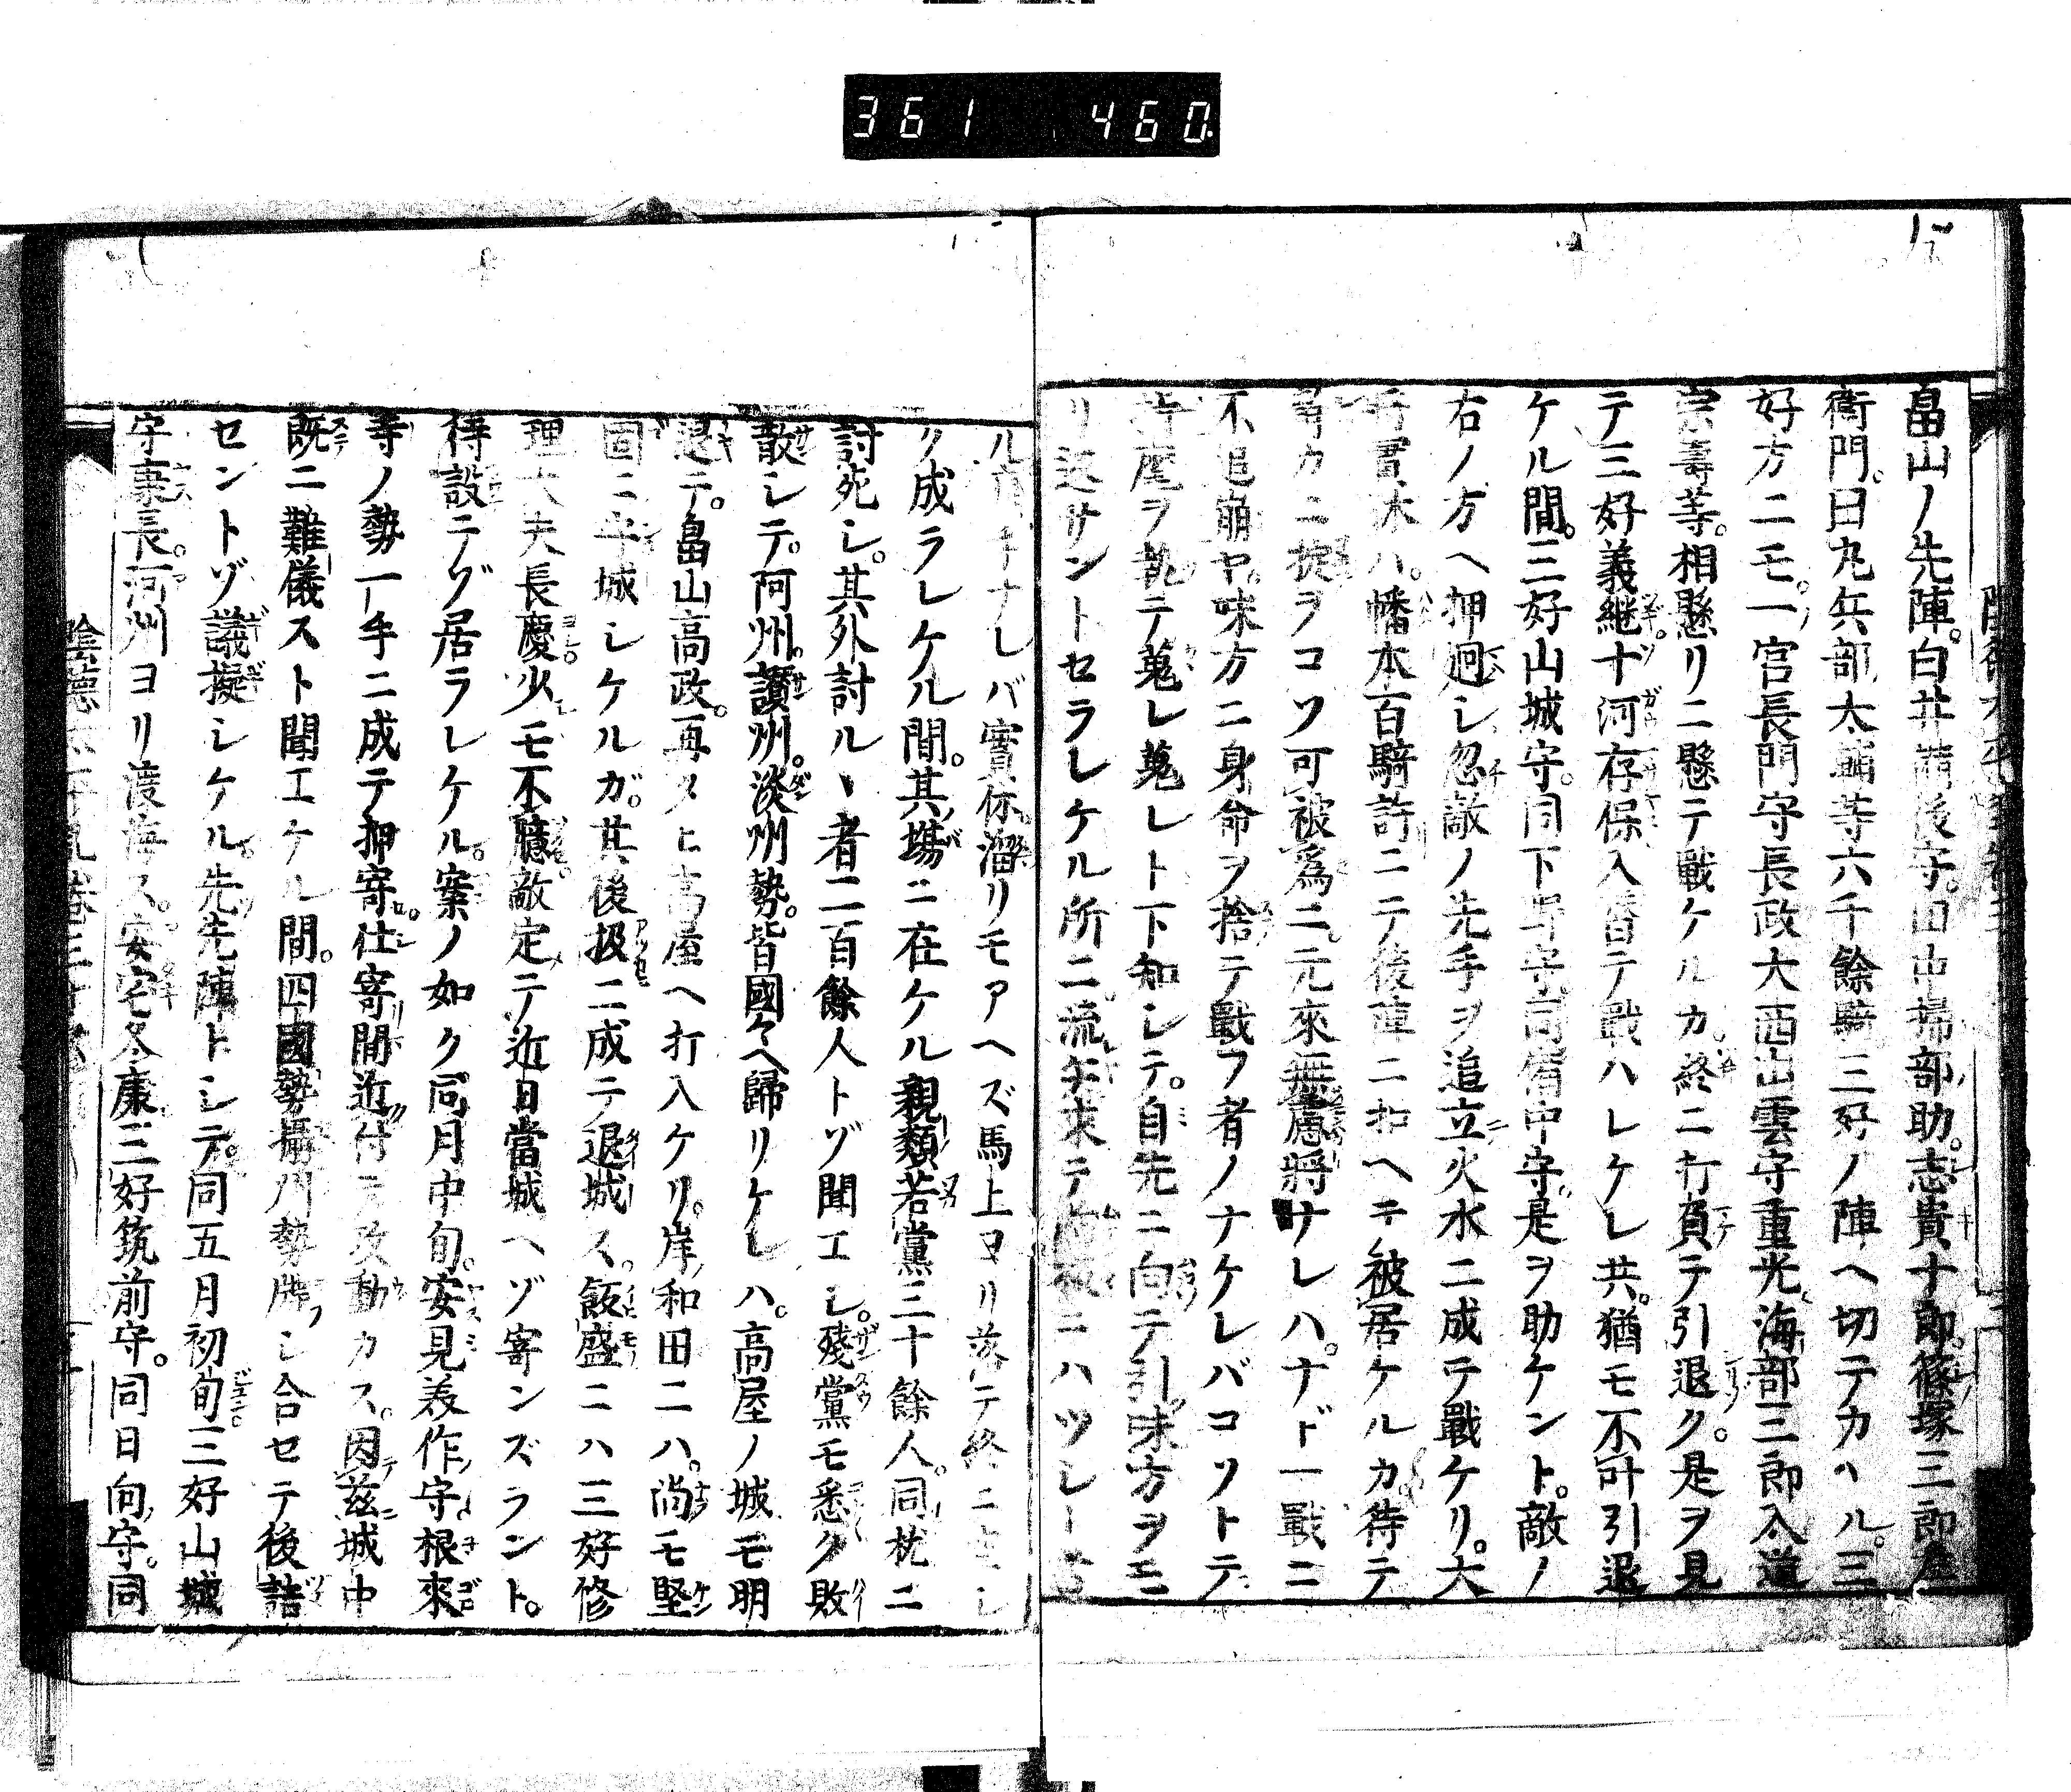 361 460
畠山ノ先陣。白井備後守。田中掃部助。志貴十郎。篠塚三郎左
衛門。日丸兵部太輔等六千餘騎三好ノ陣ヘ切テカヽル。三
好方ニモ。一宮長門守長政大西出雲守重光海部三郎入道
宗壽等。相懸リニ懸テ戰ケルカ。終ニ打負テ引退ク。是ヲ見
テ三好義継十河存保入替テ戰ハレケレ共。猶モ不叶引退
ケル間。三好山城守。同下野守同備中守。是ヲ助ケント。敵ノ
右ノ方ヘ押廻シ忽敵ノ先手ヲ追立火水ニ成テ戰ケリ。大
將實休ハ。幡本百騎許ニテ後陣ニ扣ヘテ被居ケルカ。待テ
カニ掟ヲコソ可被為ニ。元來無慮將ナレハ。ナド一戰ニ
不追崩ヤ。味方ニ身命ヲ捨テ戰フ者ノナケレバコソトテ
麾ヲ執テ蒐レ蒐レト下知シテ。自先ニ向テ引味方ヲモ
リ返サントセラレケル所ニ。流矢來テニハツシト
ルナレバ實休溜リモアヘズ馬上ヨリ落テ終ニ
ク成ラレケル間。其場ニ在ケル親類若黨三十餘人。同枕ニ
討死シ。其外討ルヽ者二百餘人トゾ聞エシ。殘黨モ悉ク敗
散シテ。阿州。讃州。淡州勢。皆國々ヘ歸リケレハ。高屋ノ城モ明
退テ。畠山高政。再ヒ高屋ヘ打入ケリ。岸和田ニハ。尚モ堅
固ニ平城シケルガ。其後扱ニ成テ退城ス。飯盛ニハ三好修
理大夫長慶少モ不臆。敵定テ近日當城ヘゾ寄ンズラント。
待設テゾ居ラレケル。案ノ如ク同月中旬。安見美作守根來
寺ノ勢一手ニ成テ押寄。仕寄間近付テ攻動カス。因茲城中
既ニ難儀スト聞エケル間。四國勢攝州勢牒シ合セテ後詰
セントゾ議擬シケル。先先陣トシテ。同五月初旬三好山城
守康長。河州ヨリ渡海ス。安宅冬康三好筑前守。同日向守。同